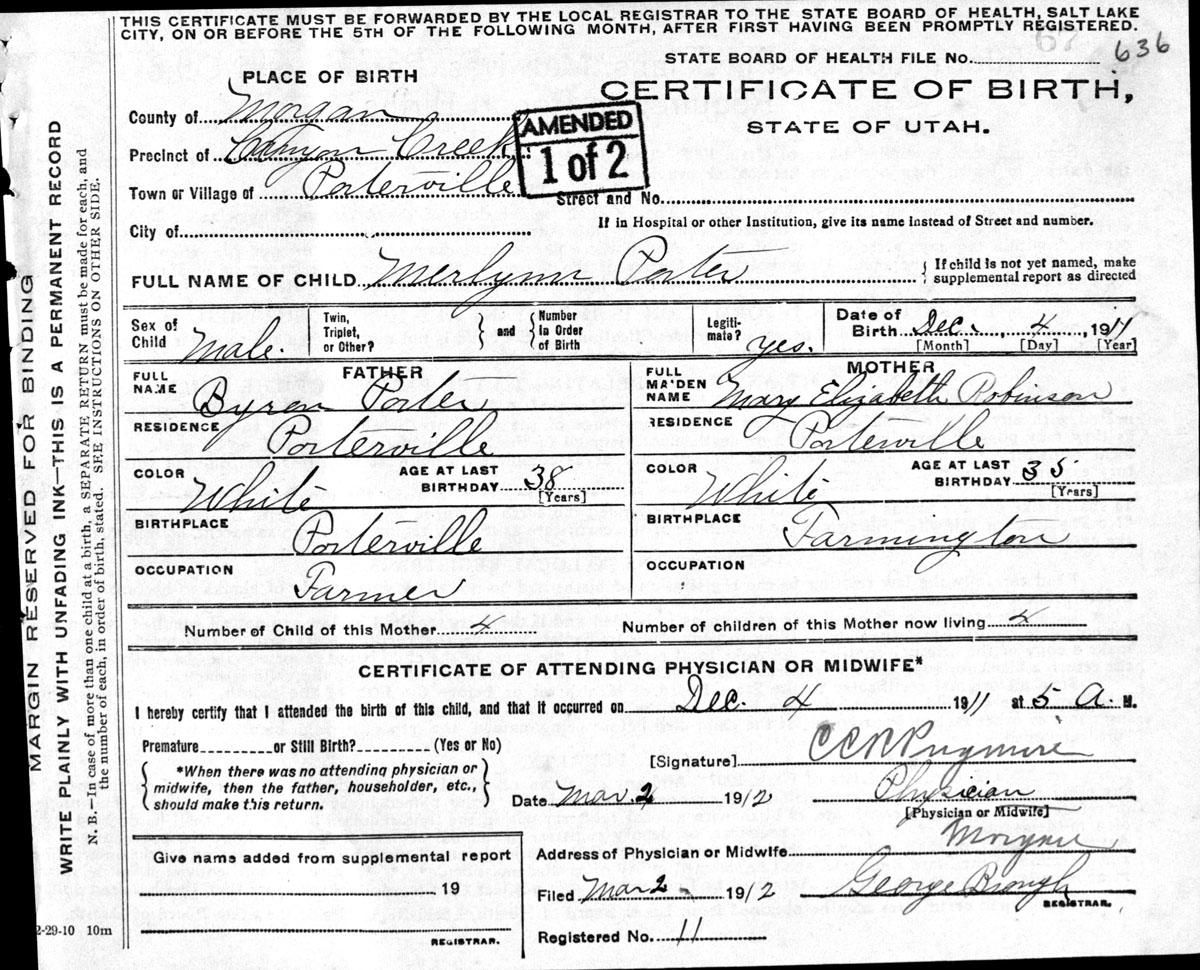 THIS CERTIFICATE MUST BE FORWARDED BY THE LOCAL REGISTRAR TO THE STATE BOARD OF HEALTH, SALT LAKE
CITY, ON OR BEFORE THE 5TH OF THE FOLLOWING MONTH, AFTER FIRST HAVING BEEN PROMPTLY REGISTERED.
67
STATE BOARD OF HEALTH FILE No. 636
PLACE OF BIRTH
CERTIFICATE OF BIRTH,
STATE OF UTAH.
County of Morgan
AMENDED
1 of 2
Precinct of Canyon Creek
Town or Village of Porterville
Street and No.
City of
If in Hospital or other Institution, give its name instead of Street and number.
FULL NAME OF CHILD Merlynn Porter
{ If child is not yet named, make
supplemental report as directed
Sex of Child Male.
Twin, Triplet, or Other? } and { Number in Order of Birth
Legiti-mate? yes.
Date of Birth Dec. 4, 1911
[Month] [Day] [Year]
FATHER
FULL NAME Byron Porter
RESIDENCE Porterville
COLOR White
AGE AT LAST BIRTHDAY 38
[Years]
BIRTHPLACE Porterville
OCCUPATION Farmer
MOTHER
FULL MAIDEN NAME Mary Elizabeth Robinson
RESIDENCE Porterville
COLOR White
AGE AT LAST BIRTHDAY 35
[Years]
BIRTHPLACE Farmington
OCCUPATION
Number of Child of this Mother 4 Number of children of this Mother now living 4
CERTIFICATE OF ATTENDING PHYSICIAN OR MIDWIFE*
I hereby certify that I attended the birth of this child, and that it occurred on Dec. 4 1911 at 5 A. M.
Premature or Still Birth? (Yes or No)
{ *When there was no attending physician or
midwife, then the father, householder, etc.,
should make this return. }
[Signature]
Date Mar. 2 1912 Physician
[Physician or Midwife]
Address of Physician or Midwife
Give name added from supplemental report
19
REGISTRAR.
Filed Mar 2 1912 George Brough
REGISTRAR.
Registered No. 11
2-29-10 10m
MARGIN RESERVED FOR BINDING
WRITE PLAINLY WITH UNFADING INK—THIS IS A PERMANENT RECORD
N. B.—In case of more than one child at a birth, a SEPARATE RETURN must be made for each, and
the number of each, in order of birth, stated. SEE INSTRUCTIONS ON OTHER SIDE.